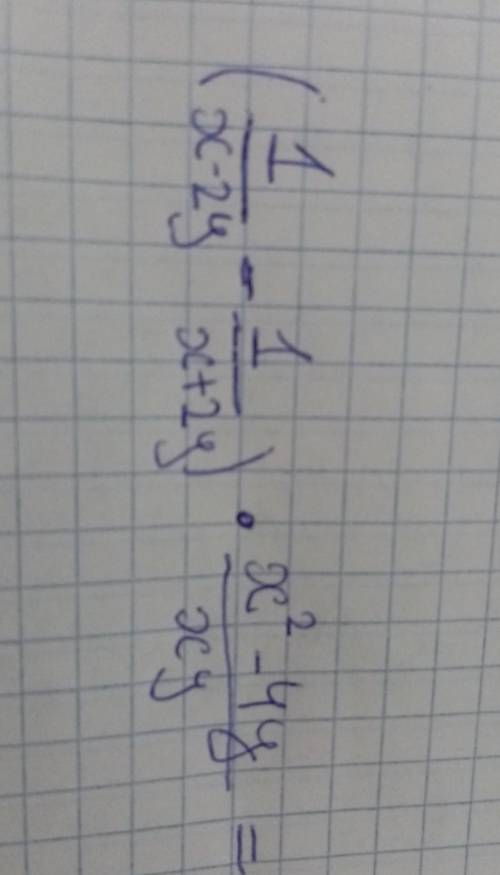 (1/(x-2y) - 1/(x+2y)) · (x² - 4y)/(xy) =